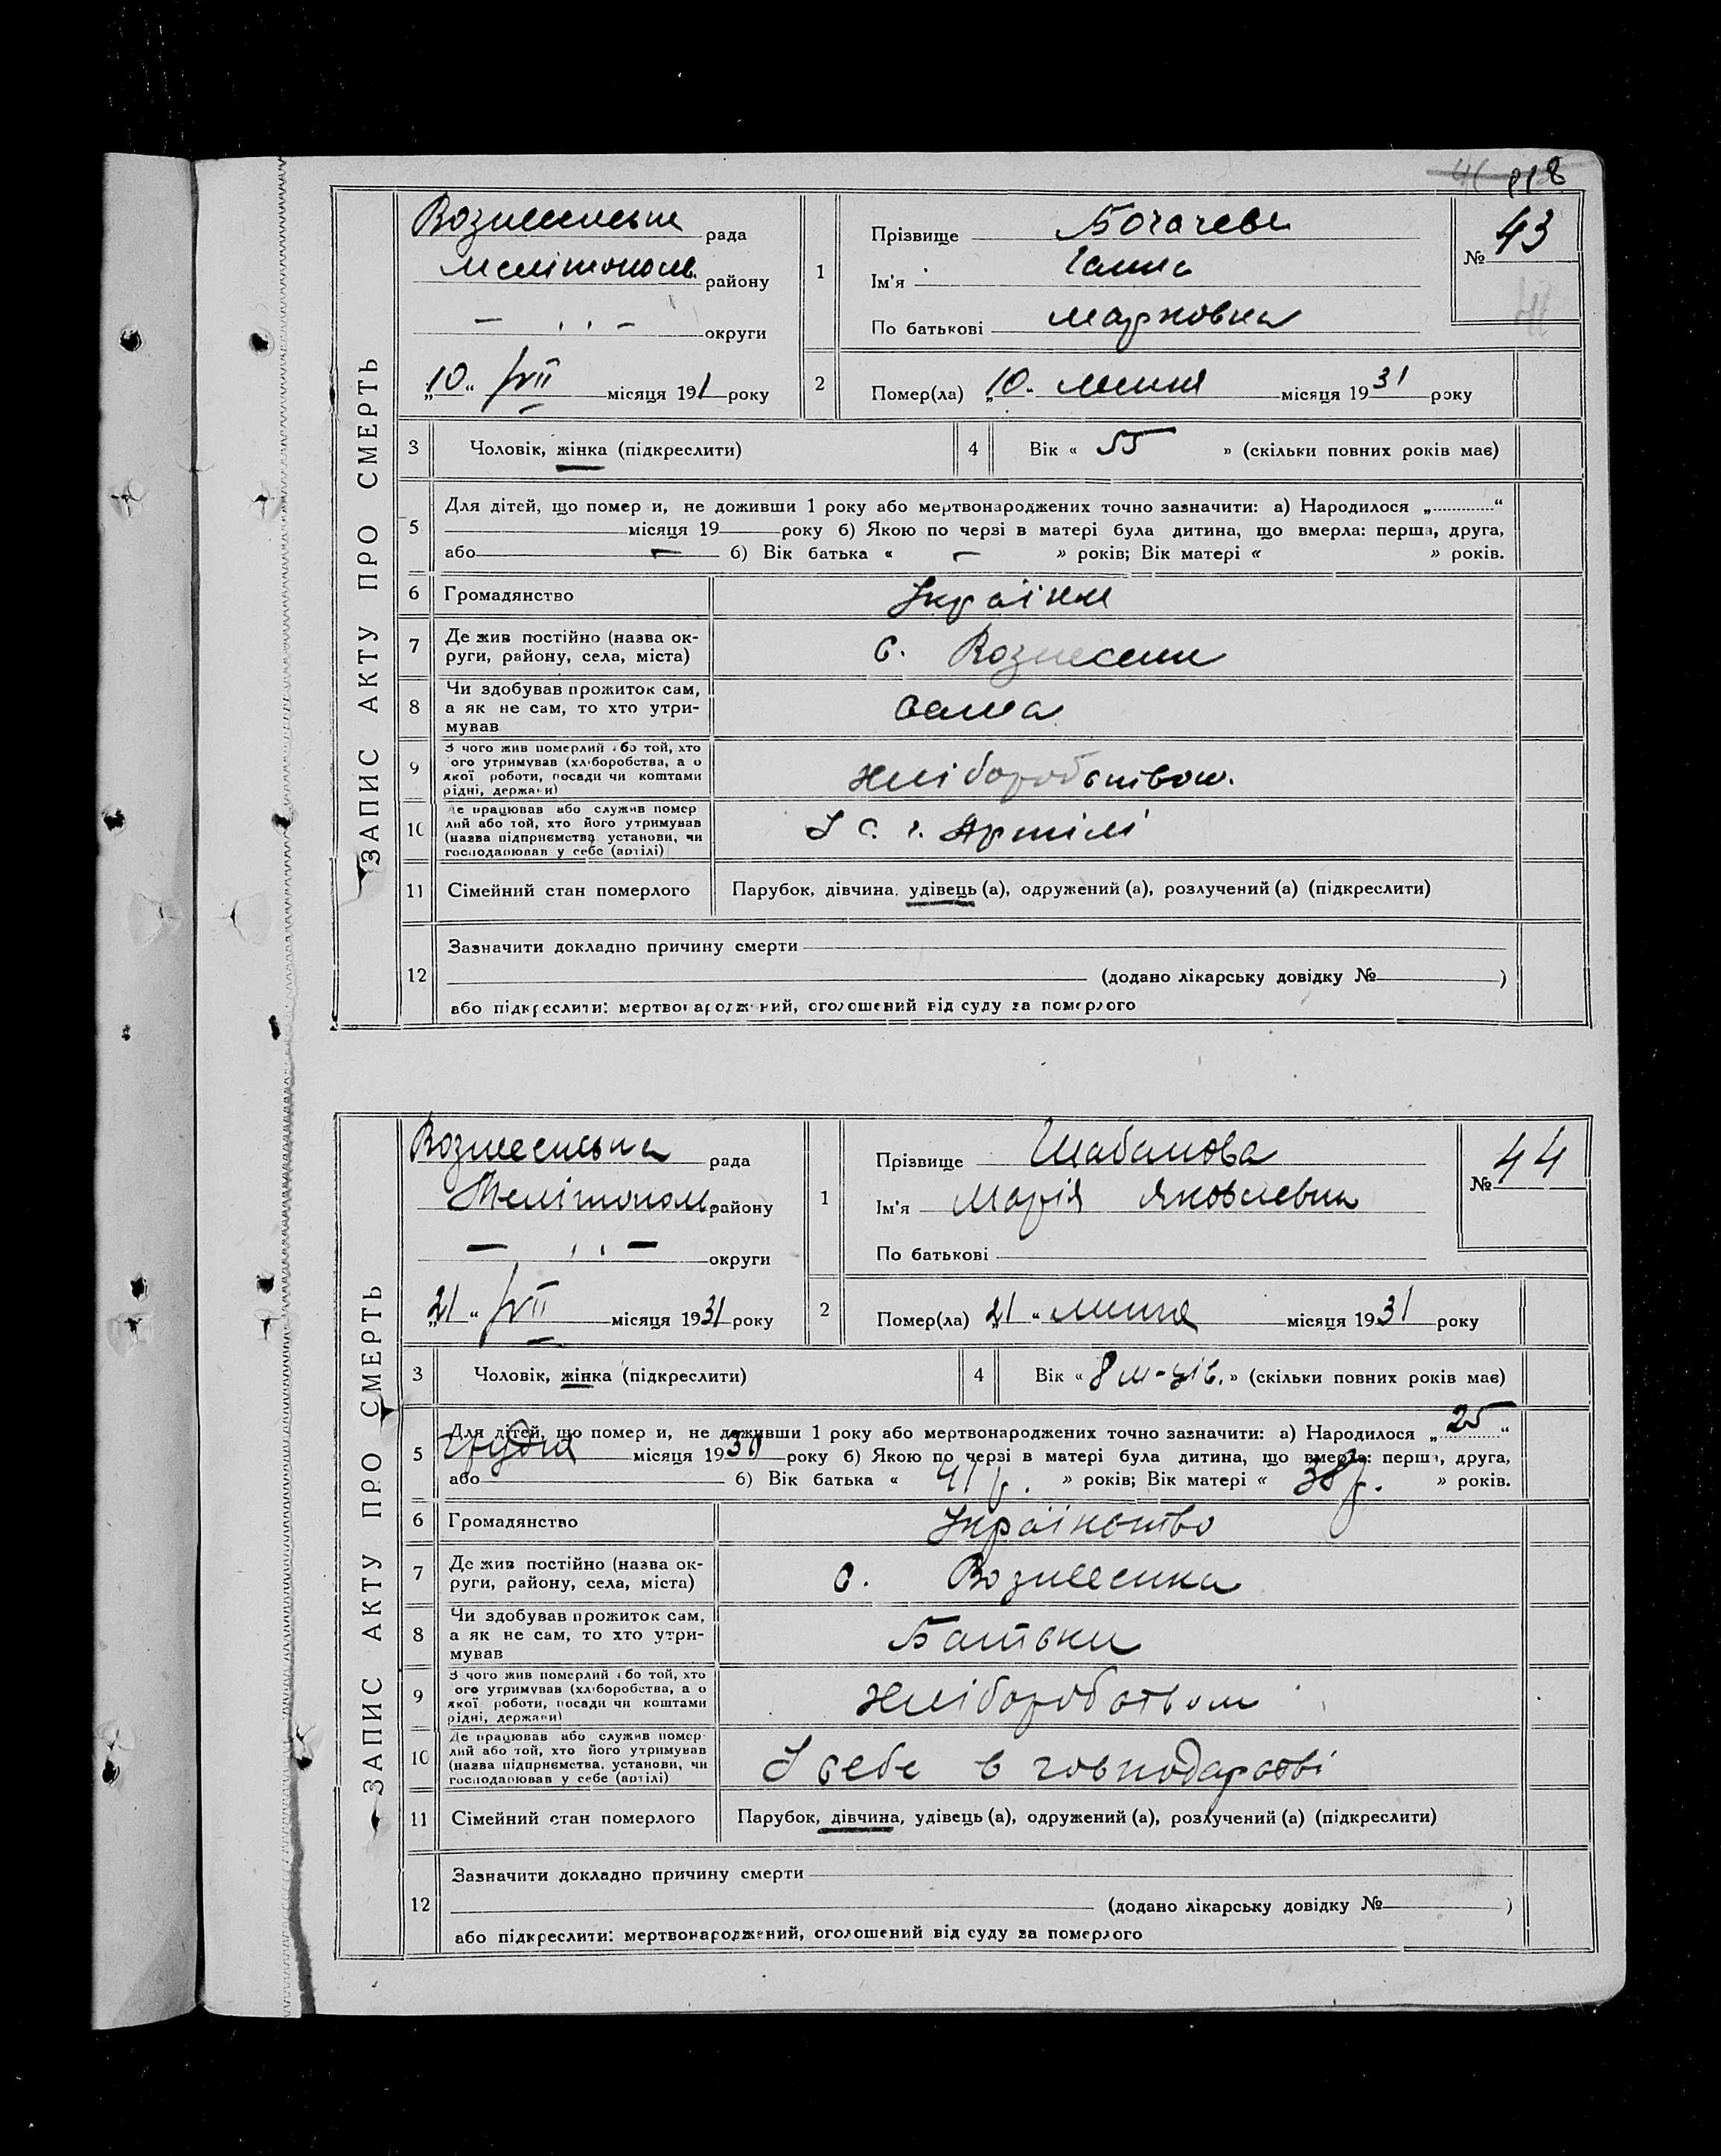 118
ЗАПИС АКТУ ПРО СМЕРТЬ
Вознесенська рада
Мелітополь. району
— ,, — округи
„10“ /VII місяця 191 року
1 Прізвище Богачева
Ім'я Ганна
По батькові Марковна
№ 43
2 Помер(ла) „10“ липня місяця 1931 року
3 Чоловік, жінка (підкреслити)
4 Вік « 55 » (скільки повних років має)
5 Для дітей, що помер и, не доживши 1 року або мертвонароджених точно зазначити: а) Народилося „ “
місяця 19 року б) Якою по черзі в матері була дитина, що вмерла: перша, друга,
або — 6) Вік батька « — » років; Вік матері « » років.
6 Громадянство Українка
7 Де жив постійно (назва ок-
руги, району, села, міста) с. Вознесенка
8 Чи здобував прожиток сам,
а як не сам, то хто утри-
мував сама
9 З чого жив померлий або той, хто
ого утримував (хліборобства, а о
якої роботи, посади чи коштами
рідні, держави) Хліборобством.
10 Де працював або служив помер
лий або той, хто його утримував
(назва підприємства установи, чи
господарював у себе (артілі) У с. г. Артілі
11 Сімейний стан померлого Парубок, дівчина, удівець (а), одружений (а), розлучений (а) (підкреслити)
12 Зазначити докладно причину смерти
(додано лікарську довідку № )
або підкреслити: мертвонароджений, оголошений від суду за померлого
ЗАПИС АКТУ ПРО СМЕРТЬ
Вознесенська рада
Мелітополь. району
— ,, — округи
„21“ /VII місяця 1931 року
1 Прізвище Шабанова
Ім'я Марія Яковлевна
По батькові
№ 44
2 Помер(ла) „21“ липня місяця 1931 року
3 Чоловік, жінка (підкреслити)
4 Вік « 8 м-ців. » (скільки повних років має)
5 Для дітей, що помер и, не доживши 1 року або мертвонароджених точно зазначити: а) Народилося „25“
грудня місяця 1930 року б) Якою по черзі в матері була дитина, що вмерла: перша, друга,
або 6) Вік батька « 41 р. » років; Вік матері « 38 р. » років.
6 Громадянство Українство
7 Де жив постійно (назва ок-
руги, району, села, міста) с. Вознесенка
8 Чи здобував прожиток сам,
а як не сам, то хто утри-
мував Батьки
9 З чого жив померлий або той, хто
ого утримував (хліборобства, а о
якої роботи, посади чи коштами
рідні, держави) Хліборобством
10 Де працював або служив помер
лий або той, хто його утримував
(назва підприємства, установи, чи
господарював у себе (артілі) У себе в господарстві
11 Сімейний стан померлого Парубок, дівчина, удівець (а), одружений (а), розлучений (а) (підкреслити)
12 Зазначити докладно причину смерти
(додано лікарську довідку № )
або підкреслити: мертвонароджений, оголошений від суду за померлого